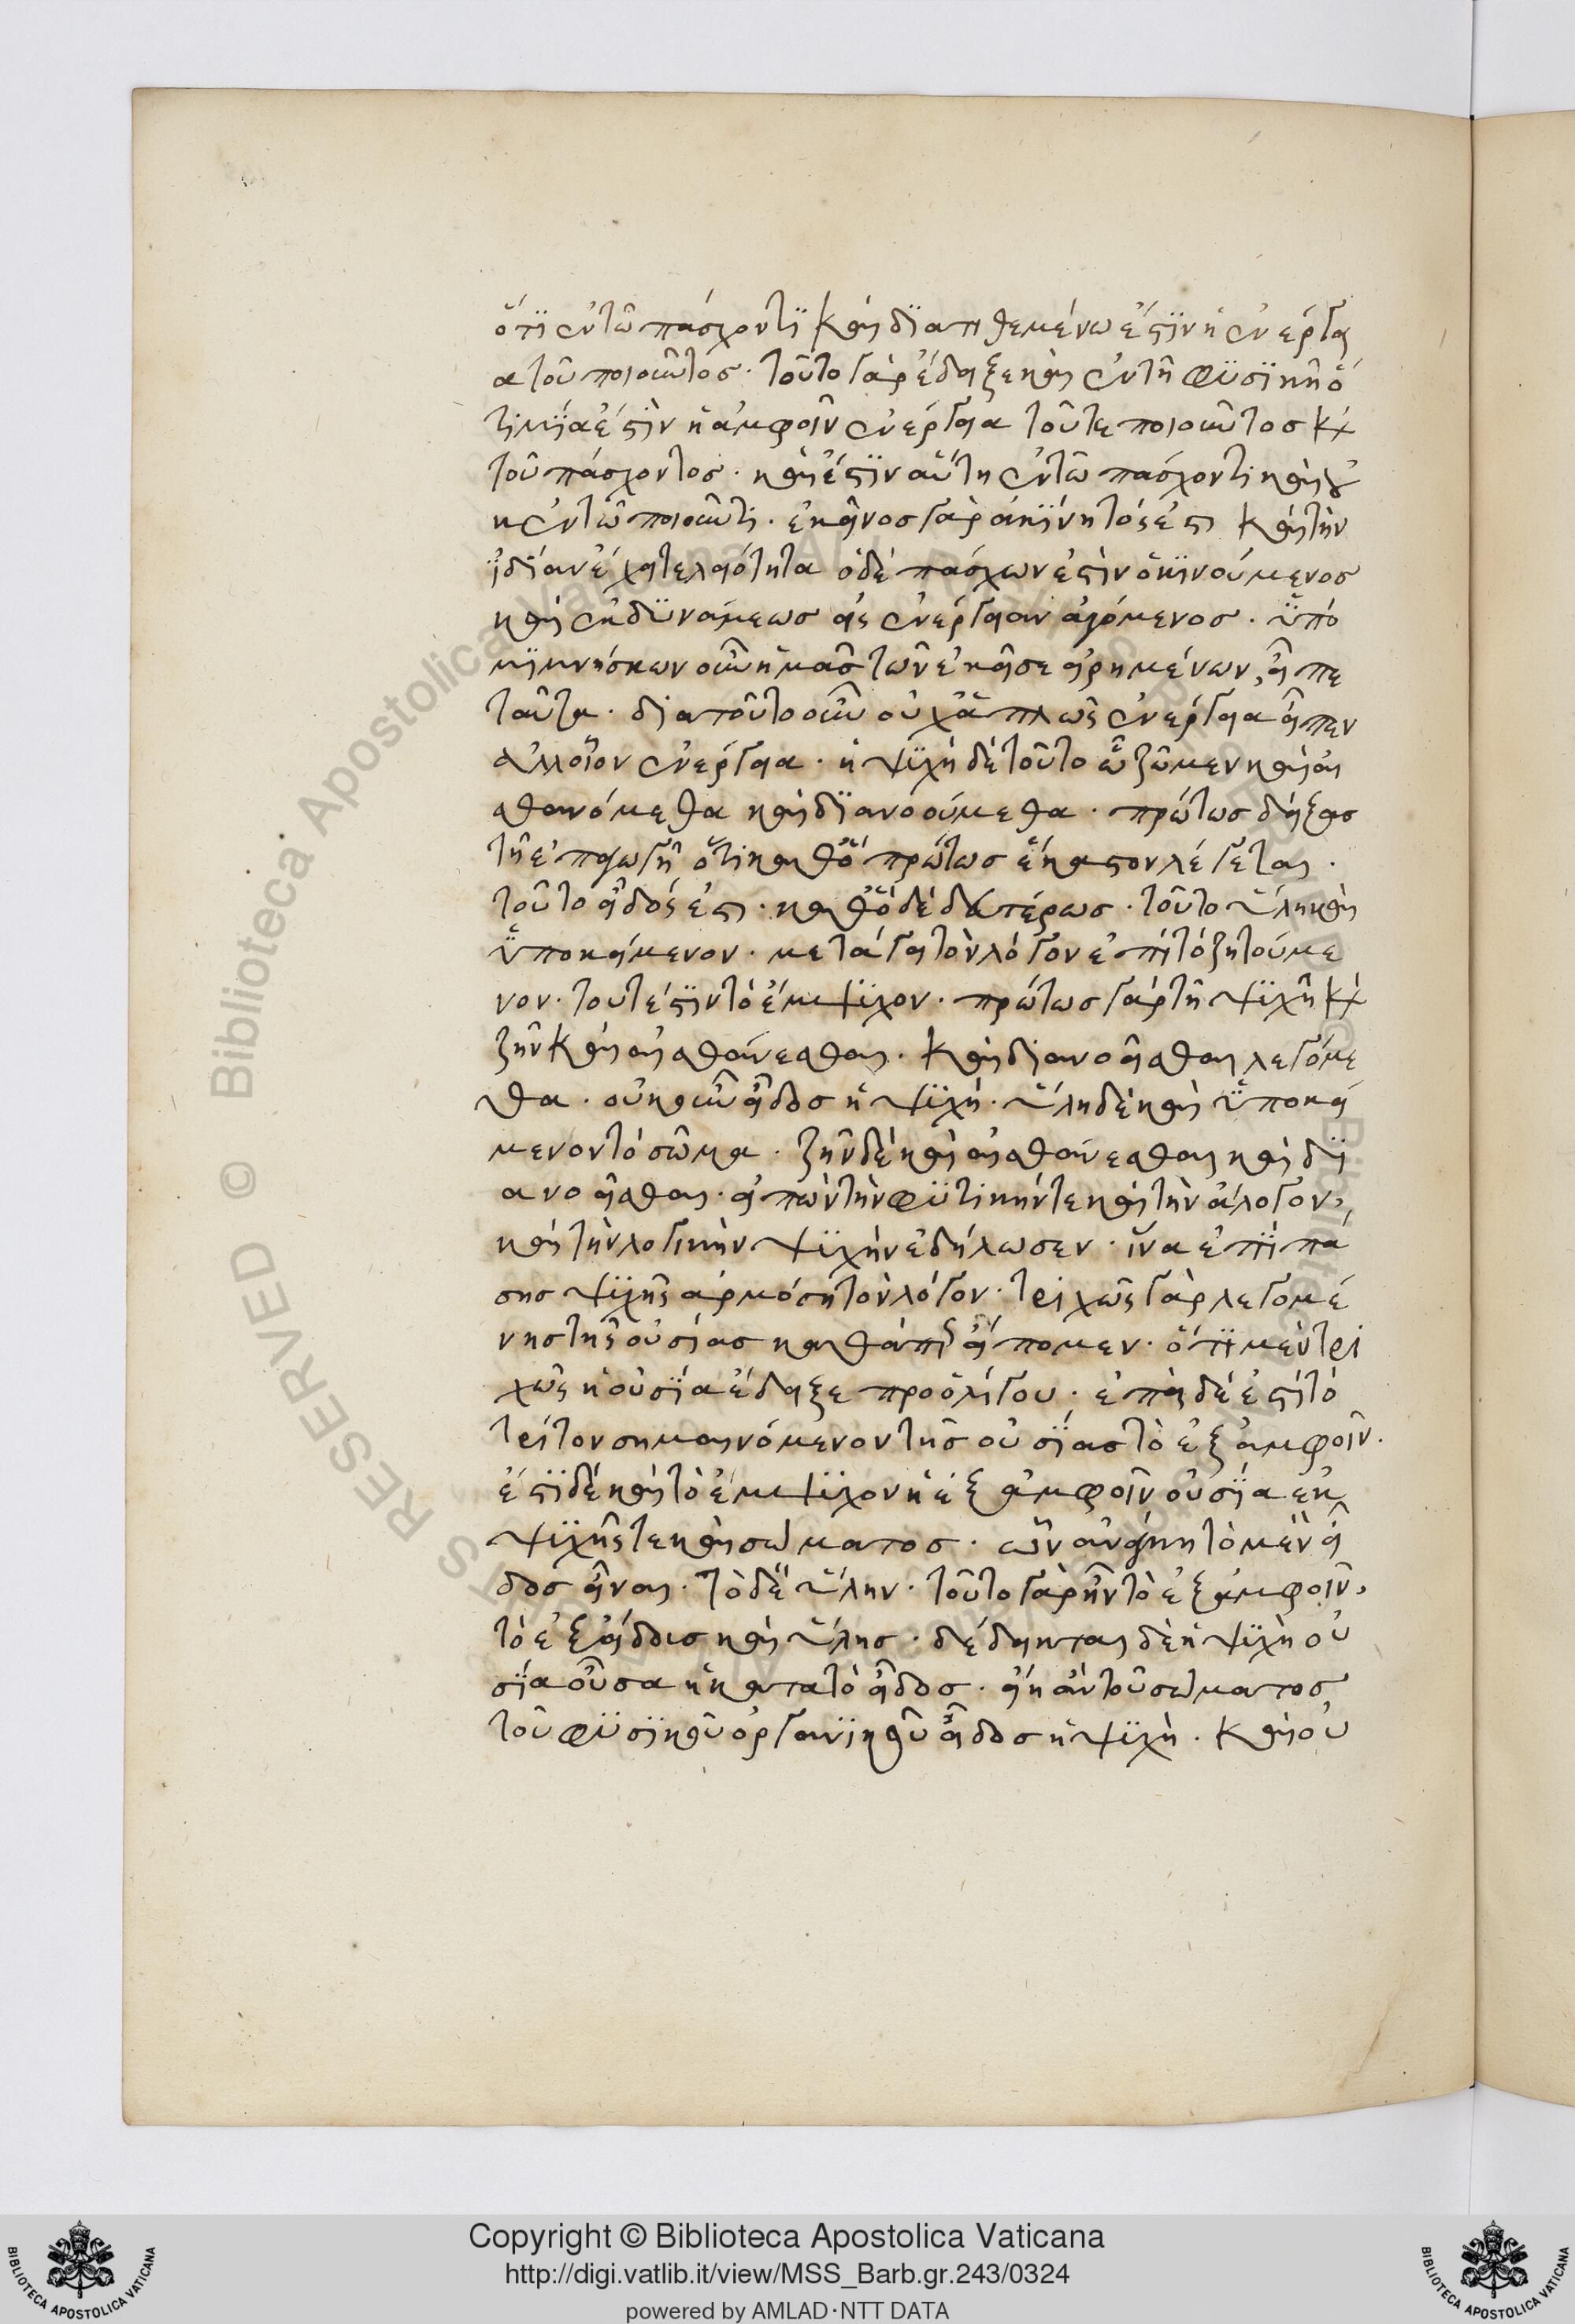 ὅτι ἐν τῷ πάσχοντι καὶ διατιθεμένω ἐστὶν ἡ ἐνέργει
α τοῦ ποιοῦντος. τοῦτο γὰρ ἔδειξε καὶ ἐν τῇ φυσικῇ ὅ
τι μία ἐστὶν ἡ ἀμφοῖν ἐνέργεια τοῦ τε ποιοῦντος καὶ
τοῦ πάσχοντος. καὶ ἔστιν αὕτη ἐν τῶ πάσχοντι καὶ οὐ
κ ἐν τῶ ποιοῦντι. ἐκεῖνος γὰρ ἀκίνητός ἐστι καὶ τὴν
ἰδίαν ἔχει τελειότητα ὁ δὲ πάσχων ἐστὶν ὁ κινούμενος
καὶ ἐκ δυνάμεως εἰς ἐνέργειαν ἀγόμενος. ὑπο
μιμνήσκων οὖν ἡμᾶς τῶν ἐκεῖσε εἰρημένων, εἶπε
ταῦτα. διατοῦτο οὖν οὐχ ἁπλῶς ἐνέργεια εἶπεν
ἀλλ' οἷον ἐνέργεια. ἡ ψυχὴ δὲ τοῦτο ὧ ζῶμεν καὶ αἰ
σθανόμεθα καὶ διανοούμεθα. πρώτως δείξας
τῇ ἐπαγωγῇ ὅτι καθ' ὃ πρώτως ἕκαστον λέγεται.
τοῦτο εἶδός ἐστι. καθ' ὃ δὲ δευτέρως. τοῦτο ὕλη καὶ
ὑποκείμενον. μετάγει τὸν λόγον ἐπὶ τὸ ζητούμε
νον. τουτέστιν τὸ ἔμψυχον. πρώτως γὰρ τῇ ψυχῇ καὶ
ζῆν καὶ αἰσθάνεσθαι. καὶ διανοεῖσθαι λεγόμε
θα. οὐκοῦν εἶδος ἡ ψυχή. ὕλη δὲ καὶ ὑποκεί
μενον τὸ σῶμα. ζῆν δὲ καὶ αἰσθάνεσθαι καὶ δι
ανοεῖσθαι. εἰπὼν τὴν φυτικήν τε καὶ τὴν ἄλογον,
καὶ τὴν λογικὴν ψυχὴν ἐδήλωσεν. ἵνα ἐπὶ πά
σης ψυχῆς ἁρμόσῃ τὸν λόγον. τριχῶς γὰρ λεγομέ
νης τῆς οὐσίας καθάπερ εἴπομεν. ὅτι μὲν τρι
χῶς ἡ οὐσία ἔδειξε προ ὀλίγου. ἐπεὶ δέ ἐστι τὸ
τρίτον σημαινόμενον τῆς οὐσίας τὸ ἐξ ἀμφοῖν.
ἔστι δὲ καὶ τὸ ἔμψυχον ἡ ἐξ ἀμφοῖν οὐσία ἐκ
ψυχῆς τε καὶ σώματος. ὧν ἀνάγκη τὸ μὲν εἶ
δος εἶναι. τὸ δὲ ὕλην. τοῦτο γὰρ ἦν τὸ ἐξ ἀμφοῖν,
τὸ ἐξ εἴδους καὶ ὕλης. δέδεικται δὲ ἡ ψυχὴ οὐ
σία οὖσα ἡ κατα τὸ εἶδος. εἴη ἂν τοῦ σώματος
τοῦ φυσικοῦ ὀργανικοῦ εἶδος ἡ ψυχὴ. καὶ οὐ
Copyright © Biblioteca Apostolica Vaticana
http://digi.vatlib.it/view/MSS_Barb.gr.243/0324
powered by AMLAD·NTT DATA